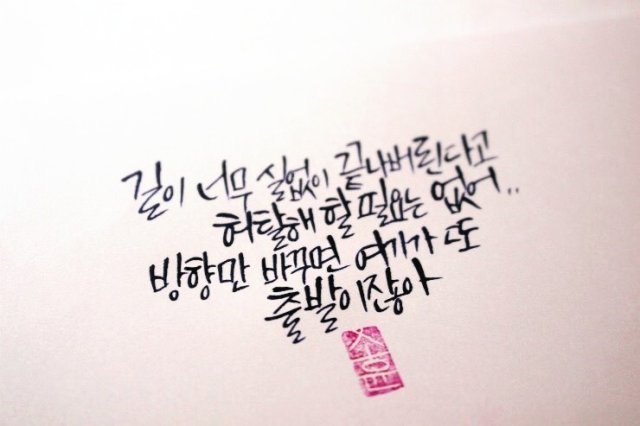 길이 너무 실없이 끝나버린다고
허탈해 할 필요는 없어..
방향만 바꾸면 여기가 또
출발이잖아